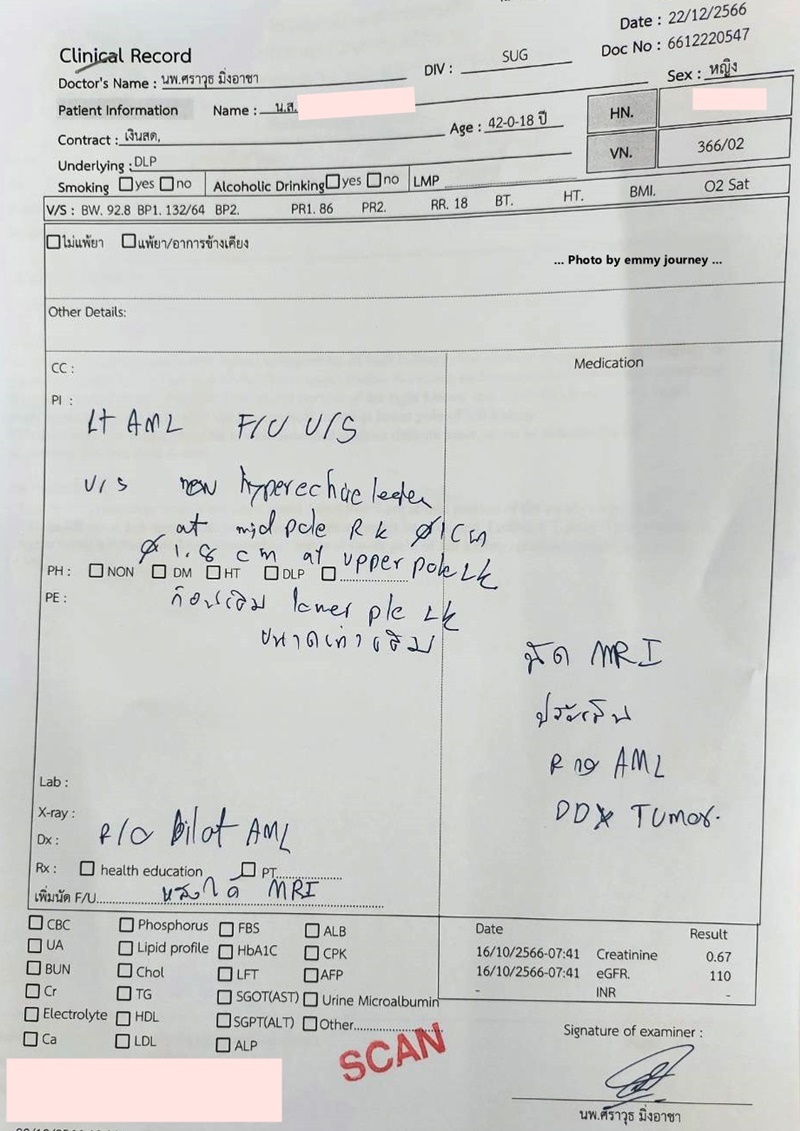 Date : 22/12/2566
Doc No : 6612220547
Clinical Record
Doctor's Name : นพ.ศราวุธ มิ่งอาชา DIV : SUG Sex : หญิง
Patient Information Name : น.ส. HN.
Contract : เงินสด, Age : 42-0-18 ปี
Underlying : DLP VN. 366/02
Smoking yes no Alcoholic Drinking yes no LMP
V/S : BW. 92.8 BP1. 132/64 BP2. PR1. 86 PR2. RR. 18 BT. HT. BMI. O2 Sat
ไม่แพ้ยา แพ้ยา/อาการข้างเคียง
... Photo by emmy journey ...
Other Details:
CC : Medication
PI :
Lt AML F/U U/S
U/S new hyperechoic
at mid pole R k ∅1cm
∅ 1.8 cm at upper pole Lk
PH : NON DM HT DLP
PE :
ก้อนเดิม lower pole Lk
ขนาดเท่าเดิม
นัด MRI
ประเมิน
AML
DDX Tumor.
Lab :
X-ray :
Dx : R/O AML
Rx : health education PT
เพิ่มนัด F/U หลังได้ MRI
CBC Phosphorus FBS ALB
UA Lipid profile HbA1C CPK
BUN Chol LFT AFP
Cr TG SGOT(AST) Urine Microalbumin
Electrolyte HDL SGPT(ALT) Other
Ca LDL ALP
Date Result
16/10/2566-07:41 Creatinine 0.67
16/10/2566-07:41 eGFR. 110
- INR -
SCAN
Signature of examiner :
นพ.ศราวุธ มิ่งอาชา